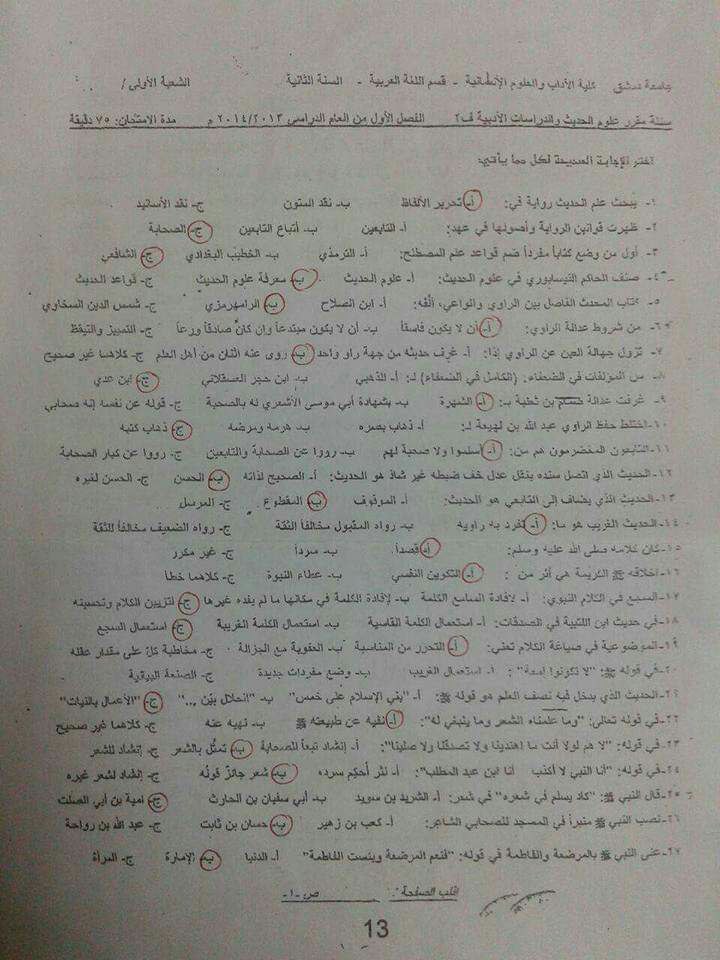 جامعة دمشق - كلية الآداب والعلوم الإنسانية - قسم اللغة العربية - السنة الثانية الشعبة الأولى /
مقرر علوم الحديث والدراسات الأدبية ف٢ الفصل الأول من العام الدراسي ٢٠١٤/٢٠١٣ م مدة الامتحان: ٧٥ دقيقة
اختر الإجابة الصحيحة لكل مما يأتي:
١- يبحث علم الحديث رواية في: أ- تحرير الألفاظ ب- نقد المتون ج- نقد الأسانيد
٢- ظهرت قوانين الرواية وأصولها في عهد: أ- التابعين ب- أتباع التابعين ج- الصحابة
٣- أول من وضع كتاباً مفرداً ضم قواعد علم المصطلح: أ- الترمذي ب- الخطيب البغدادي ج- الشافعي
٤- صنف الحاكم النيسابوري في علوم الحديث: أ- علوم الحديث ب- معرفة علوم الحديث ج- قواعد الحديث
٥- كتاب المحدث الفاصل بين الراوي والواعي، ألفه: أ- ابن الصلاح ب- الرامهرمزي ج- شمس الدين السخاوي
٦- من شروط عدالة الراوي: أ- أن لا يكون فاسقاً ب- أن لا يكون مبتدعاً وإن كان صادقاً ورعاً ج- التمييز والتيقظ
٧- تزول جهالة العين عن الراوي إذا: أ- عرف حديثه من جهة راو واحد ب- روى عنه اثنان من أهل العلم ج- كلاهما غير صحيح
٨- من المؤلفات في الضعفاء: (الكامل في الضعفاء) لـ: أ- الذهبي ب- ابن حجر العسقلاني ج- ابن عدي
٩- عرفت عدالة بن ثعلبة بـ: أ- الشهرة ب- بشهادة أبي موسى الأشعري له بالصحبة ج- قوله عن نفسه إنه صحابي
١٠- اختلط حفظ الراوي عبد الله بن لهيعة لـ: أ- ذهاب بصره ب- هرمه ومرضه ج- ذهاب كتبه
١١- التابعون المخضرمون هم من: أ- أسلموا ولا صحبة لهم ب- رووا عن الصحابة والتابعين ج- رووا عن كبار الصحابة
١٢- الحديث الذي اتصل سنده بنقل عدل خف ضبطه غير شاذ هو الحديث: أ- الصحيح لذاته ب- الحسن ج- الحسن لغيره
١٣- الحديث الذي يضاف إلى التابعي هو الحديث: أ- الموقوف ب- المقطوع ج- المرسل
١٤- الحديث الغريب هو ما: أ- تفرد به راويه ب- رواه المقبول مخالفاً الثقة ج- رواه الضعيف مخالفاً للثقة
١٥- كان كلامه صلى الله عليه وسلم: أ- قصداً ب- سرداً ج- غير مكرر
١٦- أخلاقه ﷺ الكريمة هي أثر من : أ- التكوين النفسي ب- عطاء النبوة ج- كلاهما خطأ
١٧- السجع في الكلام النبوي: أ- لإفادة السامع الكلمة ب- لإفادة الكلمة في مكانها ما لم يفده غيرها ج- لتزيين الكلام وتحسينه
١٨- في حديث ابن اللتبية في الصدقات: أ- استعمال الكلمة القاسية ب- استعمال الكلمة الغريبة ج- استعمال السجع
١٩- الموضوعية في صياغة الكلام تعني: أ- التحرر من المناسبة ب- العفوية مع الجزالة ج- مخاطبة كل على مقدار عقله
٢٠- في قوله ﷺ: "لا تكونوا إمعة": أ- استعمال الغريب ب- وضع مفردات جديدة ج- الصنعة البيانية
٢١- الحديث الذي يدخل فيه نصف العلم هو قوله ﷺ: أ- "بني الإسلام على خمس" ب- "الحلال بيّن ..." ج- "الأعمال بالنيات"
٢٢- في قوله تعالى: "وما علمناه الشعر وما ينبغي له": أ- نفيه عن طبيعته ﷺ ب- نهيه عنه ج- كلاهما غير صحيح
٢٣- في قوله: "لا هم لولا أنت ما اهتدينا ولا تصدقنا ولا صلينا": أ- إنشاد تبعاً للصحابة ب- تمثل بالشعر ج- إنشاد للشعر
٢٤- في قوله: "أنا النبي لا أكذب أنا ابن عبد المطلب": أ- نثر أُحكم سرده ب- شعر جائز قوله ج- إنشاد لشعر غيره
٢٥- قال النبي ﷺ: "كاد يسلم في شعره" في شعر: أ- الشريد بن سويد ب- أبي سفيان بن الحارث ج- أمية بن أبي الصلت
٢٦- نصب النبي ﷺ منبراً في المسجد للصحابي الشاعر: أ- كعب بن زهير ب- حسان بن ثابت ج- عبد الله بن رواحة
٢٧- عنى النبي ﷺ بالمرضعة والفاطمة في قوله: "فنعم المرضعة وبئست الفاطمة" أ- الدنيا ب- الإمارة ج- المرأة
اقلب الصفحة ص-١-
13